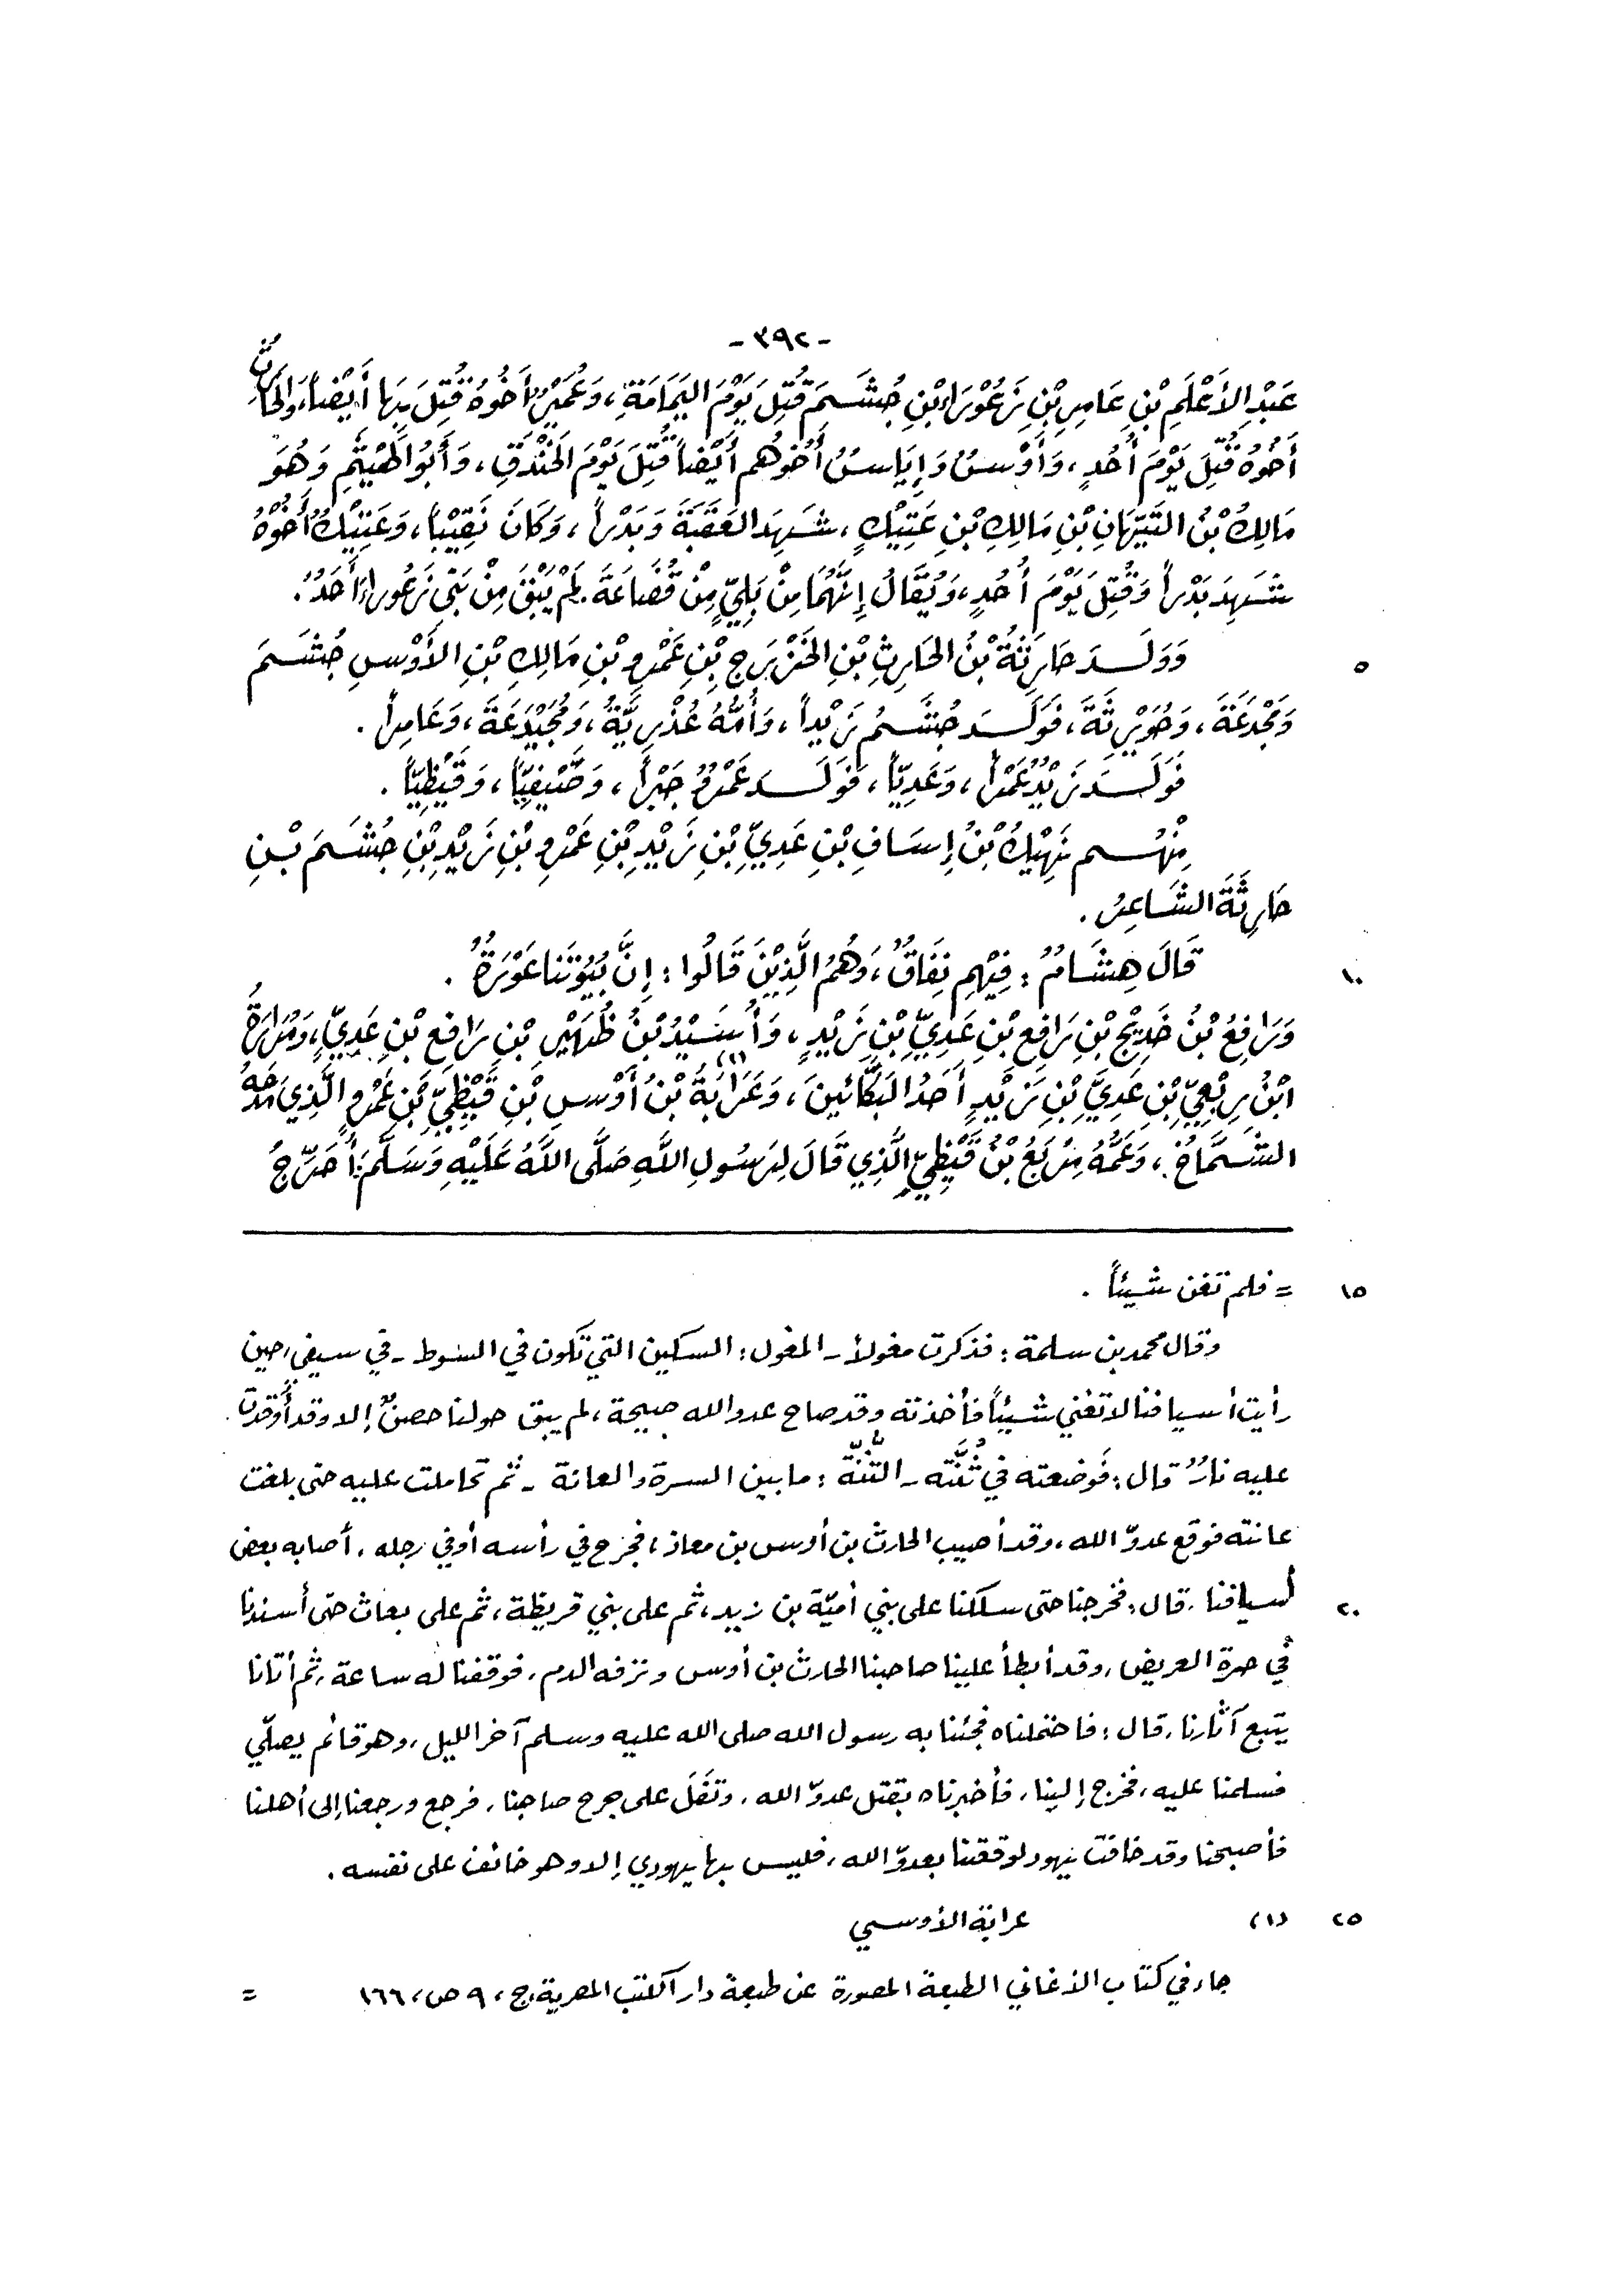 -٣٩٢-
عَبْدِ الأَعْلَمِ بْنِ عَامِرِ بْنِ زَعُوْرَاءَ بْنِ جُشَـمَ قُتِلَ يَوْمَ اليَمَامَةِ، وَعُمَيْرٌ أَخُوهُ قُتِلَ بِهَا أَيْضاً، وَالحَارِثُ
أَخُوهُ قُتِلَ يَوْمَ أُحُدٍ، وَأَوْسٌ وَإِيَاسٌ أَخُوهُم أَيْضاً قُتِلَ يَوْمَ الخَنْدَقِ، وَأَبُوالهَيْثَمِ وَهُوَ
مَالِكُ بْنُ التَّيِّهَانِ بْنِ مَالِكِ بْنِ عَتِيْكٍ، شَهِدَ العَقَبَةَ وَبَدْراً، وَكَانَ نَقِيْباً، وَعَتِيْكٌ أَخُوْهُ
شَهِدَ بَدْراً وَقُتِلَ يَوْمَ أُحُدٍ، وَيُقَالُ إِنَّهُمَا مِنْ بَلِيٍّ مِنْ قُضَاعَةَ. لَمْ يَبْقَ مِنْ بَنِي زَعُوراءَ أَحَدٌ.
٥ وَوَلَـدَ حَارِثَةُ بْنُ الحَارِثِ بْنِ الخَزْرَجِ بْنِ عَمْرِو بْنِ مَالِكِ بْنِ الأَوْسِ جُشَـمَ
وَمَجْدَعَةَ، وَحُوَيْرِثَةَ، فَوَلَـدَ جُشَـمُ زَيْداً، وَأُمُّهُ عُذْرِيَّةٌ، وَمُجَيْدَعَةَ، وَعَامِراً.
فَوَلَـدَ زَيْدٌ عَمْراً، وَعَدِيّاً، فَوَلَـدَ عَمْرٌو جَبْراً، وَصَيْفِيّاً، وَقَيْظِيّاً.
مِنْهُـم نَهِيْكُ بْنُ إِسَافِ بْنِ عَدِيِّ بْنِ زَيْدِ بْنِ عَمْرِو بْنِ زَيْدِ بْنِ جُشَـمَ بْـنِ
حَارِثَةَ الشَّاعِرُ.
١٠ قَالَ هِشَامٌ: فِيْهِم نِفَاقٌ، وَهُمُ الَّذِيْنَ قَالُوا: إِنَّ بُيُوْتَنا عَوْرَةٌ.
وَرَافِعُ بْنُ خَدِيْجِ بْنِ رَافِعِ بْنِ عَدِيِّ بْنِ زَيْدٍ، وَأُسَيْدُ بْنُ ظُهَيْرِ بْنِ رَافِعِ بْنِ عَدِيٍّ، وَمُرَارَةُ
ابْنُ رِبْعِيِّ بْنِ عَدِيِّ بْنِ زَيْدٍ أَحَدُ البَكَّائينَ، وَعَرَابَةُ(١) بْنُ أَوْسِ بْنِ قَيْظِيِّ بْنِ عَمْرٍو الَّذِي مَدَحَهُ
الشَّمَّاخُ، وَعَمُّهُ مِرْبَعُ بْنُ قَيْظِيٍّ الَّذِي قَالَ لِرَسُولِ اللَّهِ صَلَّى اللَّهُ عَلَيْهِ وَسَلَّمَ: أُحَرِّجُ
١٥ = فلم تغن شيئاً.
وقال محمد بن سلمة: فذكرت مغولاً - المغول: السكين التي تكون في السوط - في سيفي، حين
رأيت أسيافنا لا تغني شيئاً فأخذته وقد صاح عدو الله صيحة، لم يبق حولنا حصنٌ إلا وقد أُوقدت
عليه نارٌ قال: فوضعته في ثُنَّته - الثُّنّة: ما بين السرة والعانة - ثم تحاملت عليه حتى بلغت
عانته فوقع عدوّ الله، وقد أصيب الحارث بن أوس بن معاذ، فجرح في رأسه أو في رجله، أصابه بعض
٢٠ أسيافنا، قال: فخرجنا حتى سلكنا على بني أميّة بن زيد، ثم على بني قريظة، ثم على بعاث حتى أسندنا
في حرة العريض، وقد أبطأ علينا صاحبنا الحارث بن أوس ونزفه الدم، فوقفنا له ساعة، ثم أتانا
يتبع آثارنا، قال: فاحتملناه فجئنا به رسول الله صلى الله عليه وسلم آخر الليل، وهو قائم يصلّي
فسلمنا عليه، فخرج إلينا، فأخبرناه بقتل عدوّ الله، وتفَلَ على جرح صاحبنا، فرجع ورجعنا إلى أهلنا
فأصبحنا وقد خافت يهود لوقعتنا بعدوّ الله، فليس بها يهودي إلا وهو خائف على نفسه.
٢٥ (١) عرابة الأوسي
جاء في كتاب الأغاني الطبعة المصورة عن طبعة دار الكتب المصرية، ج، ٩ ص، ١٦٦ =